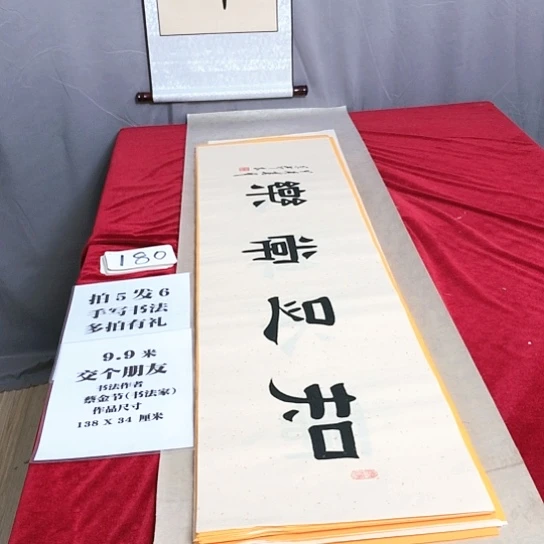 知足常樂
180
拍5发6
手写书法
多拍有礼
9.9米
交个朋友
书法作者
蔡金节(书法家)
作品尺寸
138 X 34 厘米